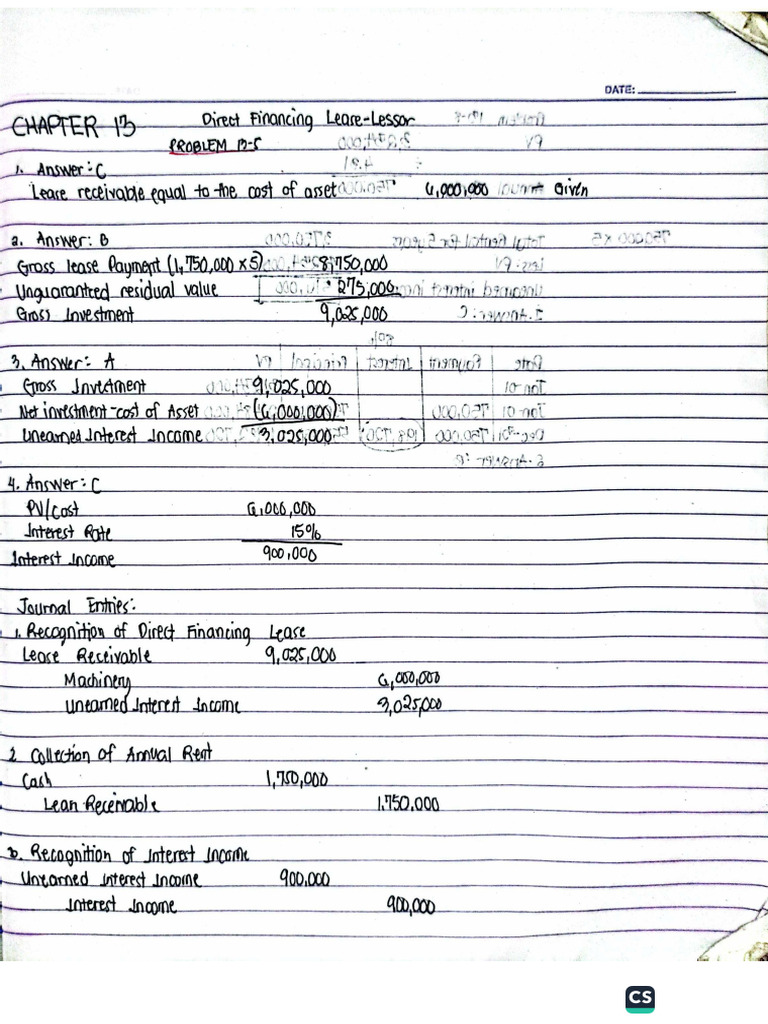 DATE:
CHAPTER 13 Direct Financing Lease-Lessor
PROBLEM 13-5
1. Answer: C
Lease receivable equal to the cost of asset 6,000,000 Given
2. Answer: B
Gross lease Payment (1,750,000 x 5) 8,750,000
Unguaranteed residual value 275,000
Gross Investment 9,025,000
3. Answer: A
Gross Investment 9,025,000
Net investment-cost of Asset (6,000,000)
Unearned Interest Income 3,025,000
4. Answer: C
PV/Cost 6,000,000
Interest Rate 15%
Interest Income 900,000
Journal Entries:
1. Recognition of Direct Financing Lease
Lease Receivable 9,025,000
Machinery 6,000,000
Unearned Interest Income 3,025,000
2. Collection of Annual Rent
Cash 1,750,000
Receivable 1,750,000
Recognition of Interest Income
Unearned Interest Income 900,000
Interest Income 900,000
CS